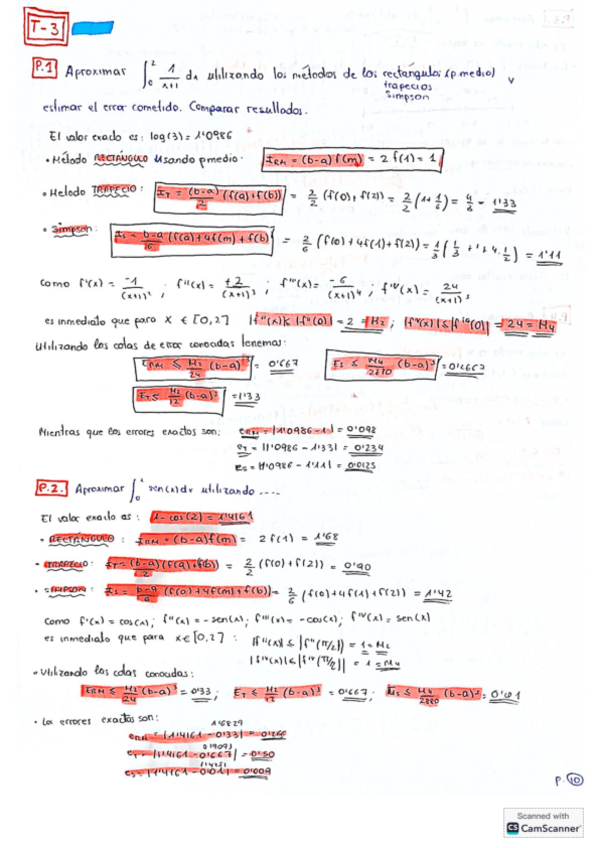 T-3
P.1 Aproximar ∫₀² 1/(x+1) dx utilizando los métodos de los rectángulos (p.medio) y
trapecios
simpson
estimar el error cometido. Comparar resultados.
El valor exacto es: log(3) = 1'0986
• Método RECTÁNGULO usando p.medio: I_RM = (b-a) f(m) = 2 f(1) = 1
• Metodo TRAPECIO: I_T = (b-a)/2 (f(a)+f(b)) = 2/2 (f(0)+f(2)) = 2/2 (1+1/6) = 4/6 = 1'33
• Simpson: I_S = b-a/6 (f(a)+4f(m)+f(b)) = 2/6 (f(0)+4f(1)+f(2)) = 1/3 (1/3 + 1 + 4·1/2) = 1'11
como f'(x) = -1/(x+1)² ; f''(x) = +2/(x+1)³ ; f'''(x) = -6/(x+1)⁴ ; f^IV(x) = 24/(x+1)⁵
es inmediato que para x ∈ [0,2] |f''(x)| ≤ |f''(0)| = 2 = M₂ ; |f^IV(x)| ≤ |f^IV(0)| = 24 = M₄
Utilizando las cotas de error conocidas tenemos:
E_RM ≤ M₂/24 (b-a)³ = 0'667 E_S ≤ M₄/2880 (b-a)⁵ = 0'2667
E_T ≤ M₂/12 (b-a)³ = 1'33
Mientras que los errores exactos son: e_RM = |1'0986 - 1| = 0'098
e_T = |1'0986 - 1'33| = 0'234
e_S = |1'0986 - 1'11| = 0'0125
P.2. Aproximar ∫₀² sen(x)dx utilizando ....
El valor exacto es: 1 - cos(2) = 1'4161
• RECTÁNGULO: I_RM = (b-a) f(m) = 2 f(1) = 1'68
• TRAPECIO: I_T = (b-a)/2 (f(a)+f(b)) = 2/2 (f(0)+f(2)) = 0'90
• SIMPSON: I_S = b-a/6 (f(a)+4f(m)+f(b)) = 2/6 (f(0)+4f(1)+f(2)) = 1'42
Como f'(x) = cos(x); f''(x) = -sen(x); f'''(x) = -cos(x); f^IV(x) = sen(x)
es inmediato que para x ∈ [0,2]: |f''(x)| ≤ |f''(π/2)| = 1 = M₂
|f^IV(x)| ≤ |f^IV(π/2)| = 1 = M₄
• Utilizando las cotas conocidas:
E_RM ≤ M₂/24 (b-a)³ = 0'33; E_T ≤ M₂/12 (b-a)³ = 0'667; E_S ≤ M₄/2880 (b-a)⁵ = 0'01
• Los errores exactos son:
1'6829
e_RM = |1'4161 - 0'33| = 0'266
0'9093
e_T = |1'4161 - 0'667| = 0'50
e_S = |1'4161 - 0'01| = 0'009
P. 10
Scanned with
CS CamScanner